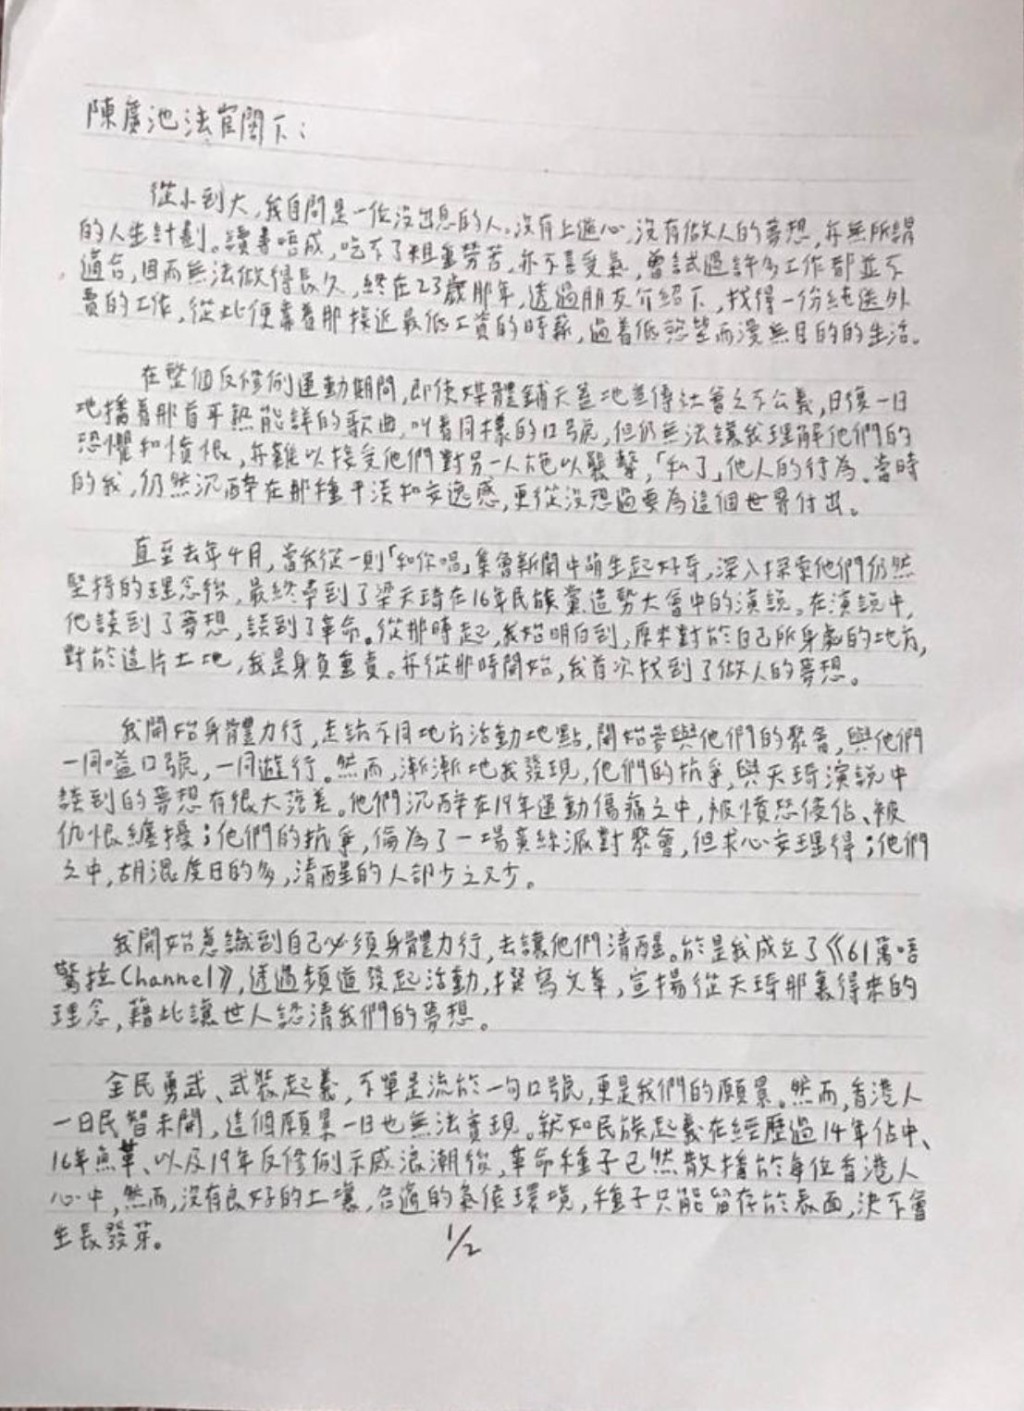 陳廣池法官閣下：
從小到大，我自問是一位沒出息的人。沒有上進心，沒有做人的夢想，亦無所謂
的人生計劃。讀書唔成，吃不了粗重勞苦，亦不喜受氣，曾試過許多工作都並不
適合，因而無法做得長久，終在23歲那年，透過朋友介紹下，找得一份純送外
賣的工作，從此便靠着那接近最低工資的時薪，過着低慾望而漫無目的的生活。
在整個反修例運動期間，即使媒體鋪天蓋地宣傳社會之不公義，日復一日
地播着那首耳熟能詳的歌曲，叫着同樣的口號，但仍無法讓我理解他們的
恐懼和憤恨，亦難以接受他們對另一人施以襲擊，「私了」他人的行為。當時
的我，仍然沉醉在那種平淡和安逸感，更從沒想過要為這個世界付出。
直至去年4月，當我從一則「和你唱」集會新聞中萌生起好奇，深入探索他們仍然
堅持的理念後，最終牽到了梁天琦在16年民族黨造勢大會中的演說。在演說中，
他談到了夢想，談到了革命。從那時起，我始明白到，原來對於自己所身處的地方，
對於這片土地，我是身負重責。亦從那時開始，我首次找到了做人的夢想。
我開始身體力行，走訪不同地方活動地點，開始參與他們的聚會，與他們
一同嗌口號，一同遊行。然而，漸漸地我發現，他們的抗爭，與天琦演說中
談到的夢想有很大落差。他們沉醉在19年運動傷痛之中，被憤怒侵佔、被
仇恨纏擾；他們的抗爭，淪為了一場黃絲派對聚會，但求心安理得；他們
之中，胡混度日的多，清醒的人卻少之又少。
我開始意識到自己必須身體力行，去讓他們清醒。於是我成立了《61萬唔
驚拉Channel》，透過頻道發起活動，撰寫文章，宣揚從天琦那裏得來的
理念，藉此讓世人認清我們的夢想。
全民勇武、武裝起義，不單是流於一句口號，更是我們的願景。然而，香港人
一日民智未開，這個願景一日也無法實現。就如民族起義在經歷過14年佔中、
16年魚革、以及19年反修例示威浪潮後，革命種子已然散播於每位香港人
心中，然而，沒有良好的土壤，合適的氣候環境，種子只能留存於表面，決不會
生長發芽。
1/2